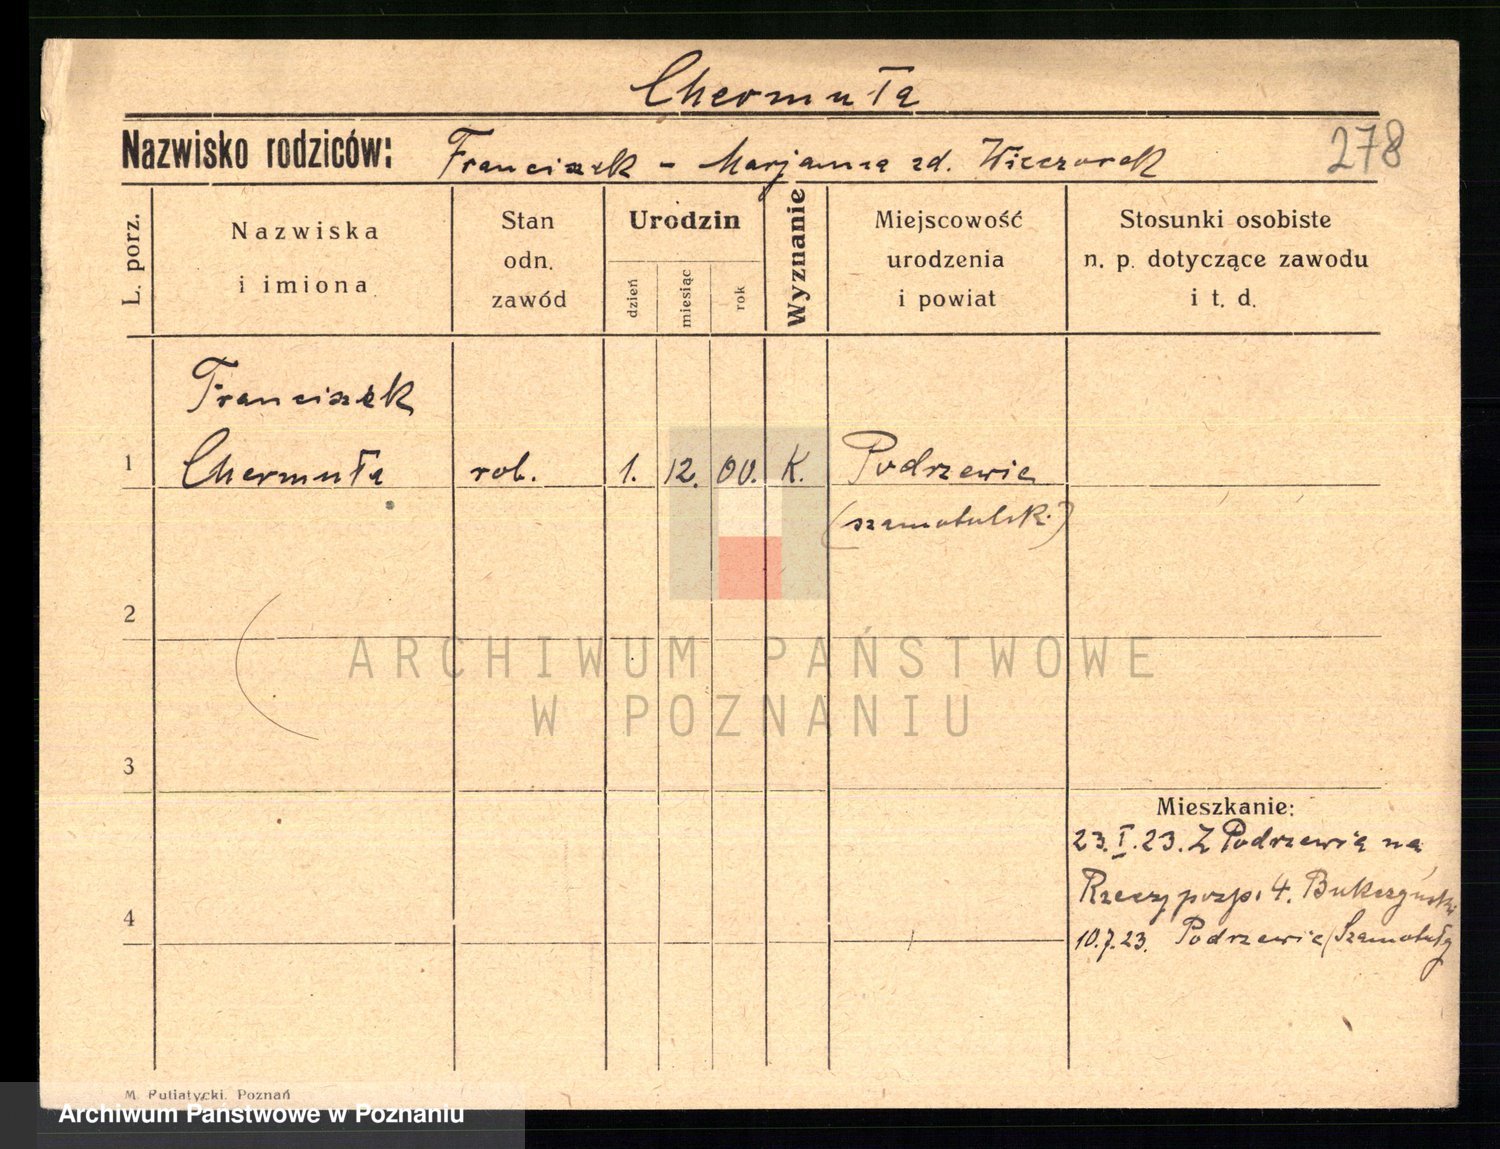 Chermuła
Nazwisko rodziców: Franciszek - Marjanna zd. Wieczorek
278
L. porz.
Nazwiska
i imiona
Stan
odn.
zawód
Urodzin
dzień
miesiąc
rok
Wyznanie
Miejscowość
urodzenia
i powiat
Stosunki osobiste
n. p. dotyczące zawodu
i t. d.
Franciszek
1 Chermuła rob. 1. 12. 00. K. Podrzewie
(szamotulski)
2
ARCHIWUM PAŃSTWOWE
W POZNANIU
3
Mieszkanie:
23.I.23. Z Podrzewia na
Rzeczyposp. 4.
4
10.7.23. Podrzewie (Szamotuły
M. Putiatycki. Poznań
Archiwum Państwowe w Poznaniu